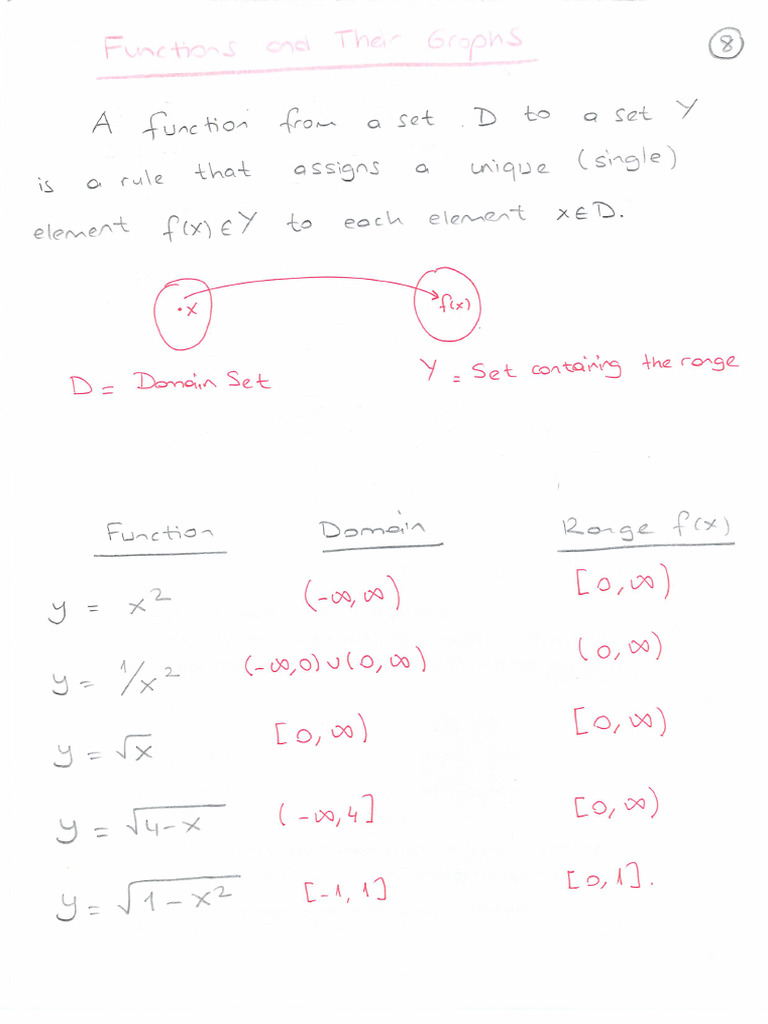 Functions and Their Graphs
8
A function from a set D to a set Y
is a rule that assigns a unique (single)
element f(x)∈Y to each element x∈D.
•x f(x)
D = Domain Set Y = Set containing the range
Function Domain Range f(x)
y = x² (-∞,∞) [0,∞)
y = 1/x² (-∞,0)∪(0,∞) (0,∞)
y = √x [0,∞) [0,∞)
y = √(4-x) (-∞,4] [0,∞)
y = √(1-x²) [-1,1] [0,1].